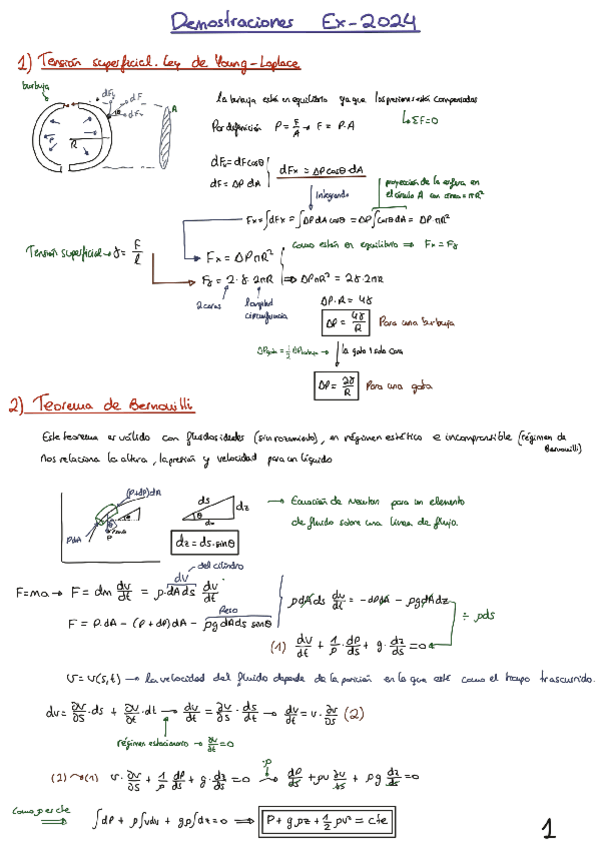 Demostraciones Ex-2024
1) Tensión superficial. Ley de Young-Laplace
burbuja
dFy dF
dFx
θ
A
P
R
la burbuja está en equilibrio ya que las presiones están compensadas
↳ ΣF=0
Por definición P = F/A → F = P·A
dFx = dF cosθ
dF = ΔP dA
dFx = ΔP cosθ·dA
Integrando
proyección de la esfera en
el círculo A con área = πR²
Fx = ∫dFx = ∫ΔP dA cosθ = ΔP ∫cosθ dA = ΔP πR²
Tensión superficial → γ = F/l
Fx = ΔP πR²
como están en equilibrio ⇒ Fx = Fγ
Fγ = 2·γ·2πR ⇒ ΔPπR² = 2γ·2πR
2 caras
longitud
circunferencia
ΔP·R = 4γ
ΔP = 4γ/R Para una burbuja
ΔPgota = 1/2 ΔPburbuja → la gota 1 sola cara
ΔP = 2γ/R Para una gota
2) Teorema de Bernouilli
Este teorema es válido con fluidos ideales (sin rozamiento), en régimen estático e incomprensible (régimen de
Bernouilli)
Nos relaciona la altura, la presión y velocidad para un líquido
(P+dP)dA
PdA
ds
dz
dx
θ
dz = ds·sinθ
→ Ecuación de Newton para un elemento
de fluido sobre una línea de flujo.
dV → del cilindro
F=ma → F = dm dv/dt = ρ·dAds dv/dt
Peso
F = P·dA − (P+dP)dA − ρg dA ds sinθ
ρdAds dv/dt = −dPdA − ρgdAdz
÷ ρds
(1) dv/dt + 1/ρ·dP/ds + g·dz/ds = 0
v = v(s,t) → la velocidad del fluido depende de la posición en la que esté como el tiempo trascurrido.
dv = ∂v/∂s·ds + ∂v/∂t·dt → dv/dt = ∂v/∂s·ds/dt → dv/dt = v·∂v/∂s (2)
régimen estacionario → ∂v/∂t = 0
(2) → (1) v·∂v/∂s + 1/ρ dP/ds + g·dz/ds = 0 → dP/ds + ρv ∂v/∂s + ρg dz/ds = 0
·ρ
Como ρ es cte ⇒ ∫dP + ρ∫vdv + gρ∫dz = 0 ⇒ P + gρz + 1/2 ρv² = cte
1